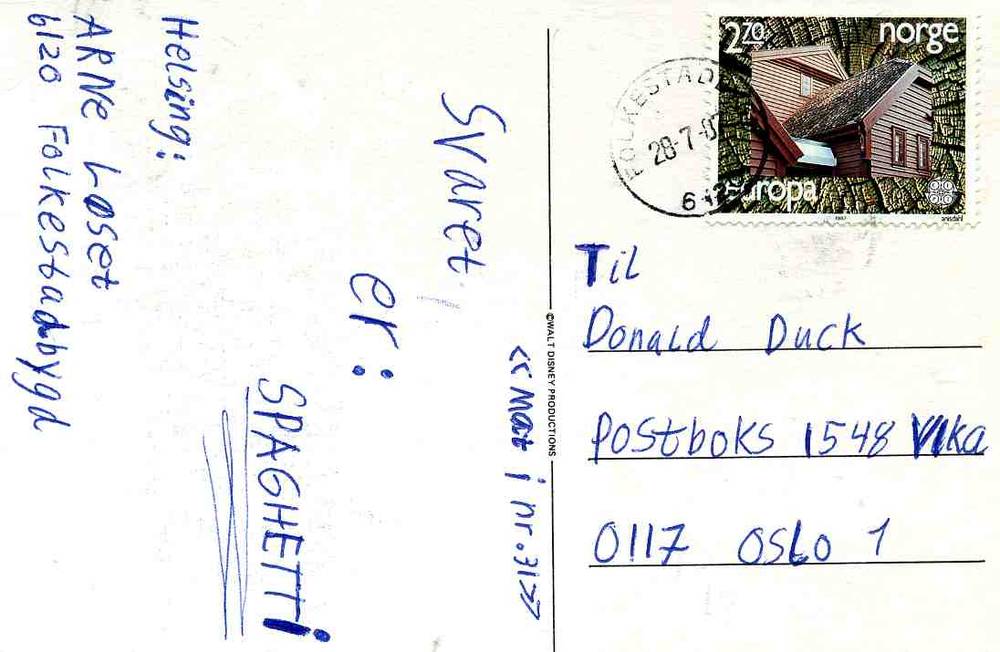 << Mat i nr. 31 >>
Svaret
er:
SPAGHETTI
Helsing:
ARNe Løset
6120 Folkestadbygd
©WALT DISNEY PRODUCTIONS
2,70 norge
europa
FOLKESTAD
28-7-8
Til
Donald Duck
Postboks 1548 Vika
0117 OSLO 1